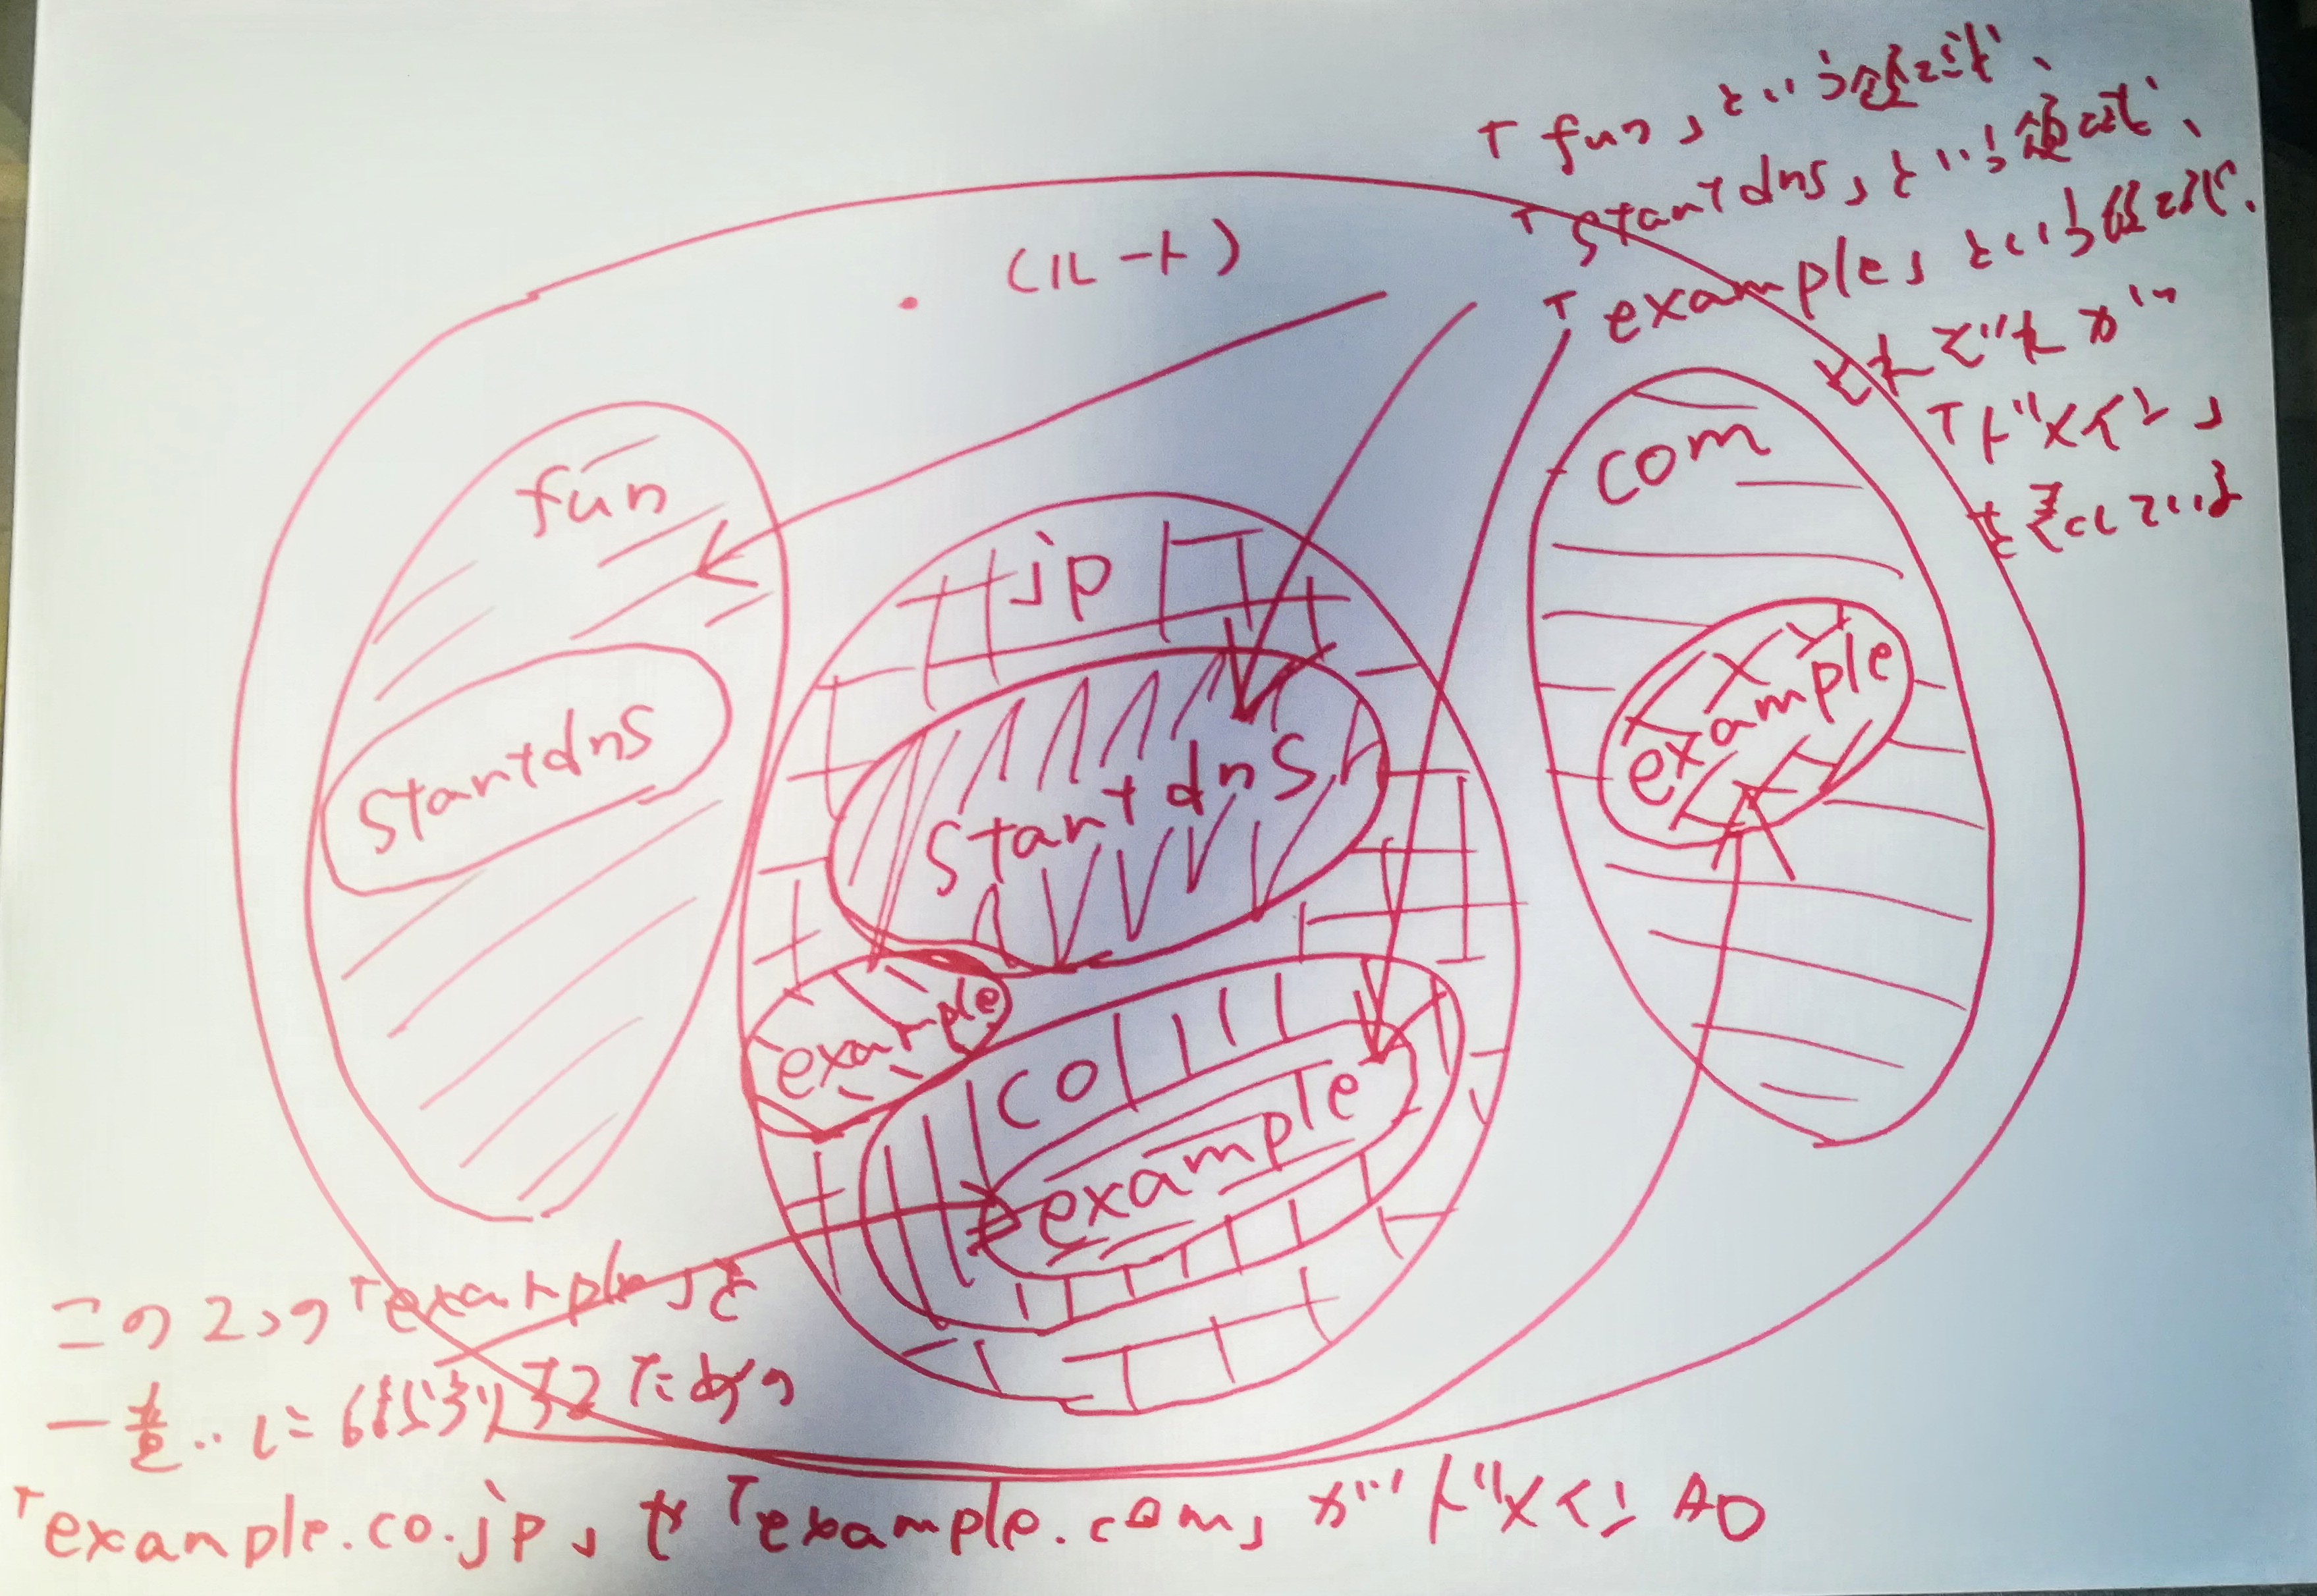 「fun」という領域、
「startdns」という領域、
「example」という領域、
それぞれが
「ドメイン」
を表している
. (ルート)
fun
startdns
jp
startdns
example
co
example
com
example
この2つの「example」を
一意に識別するための
「example.co.jp」や「example.com」がドメイン名